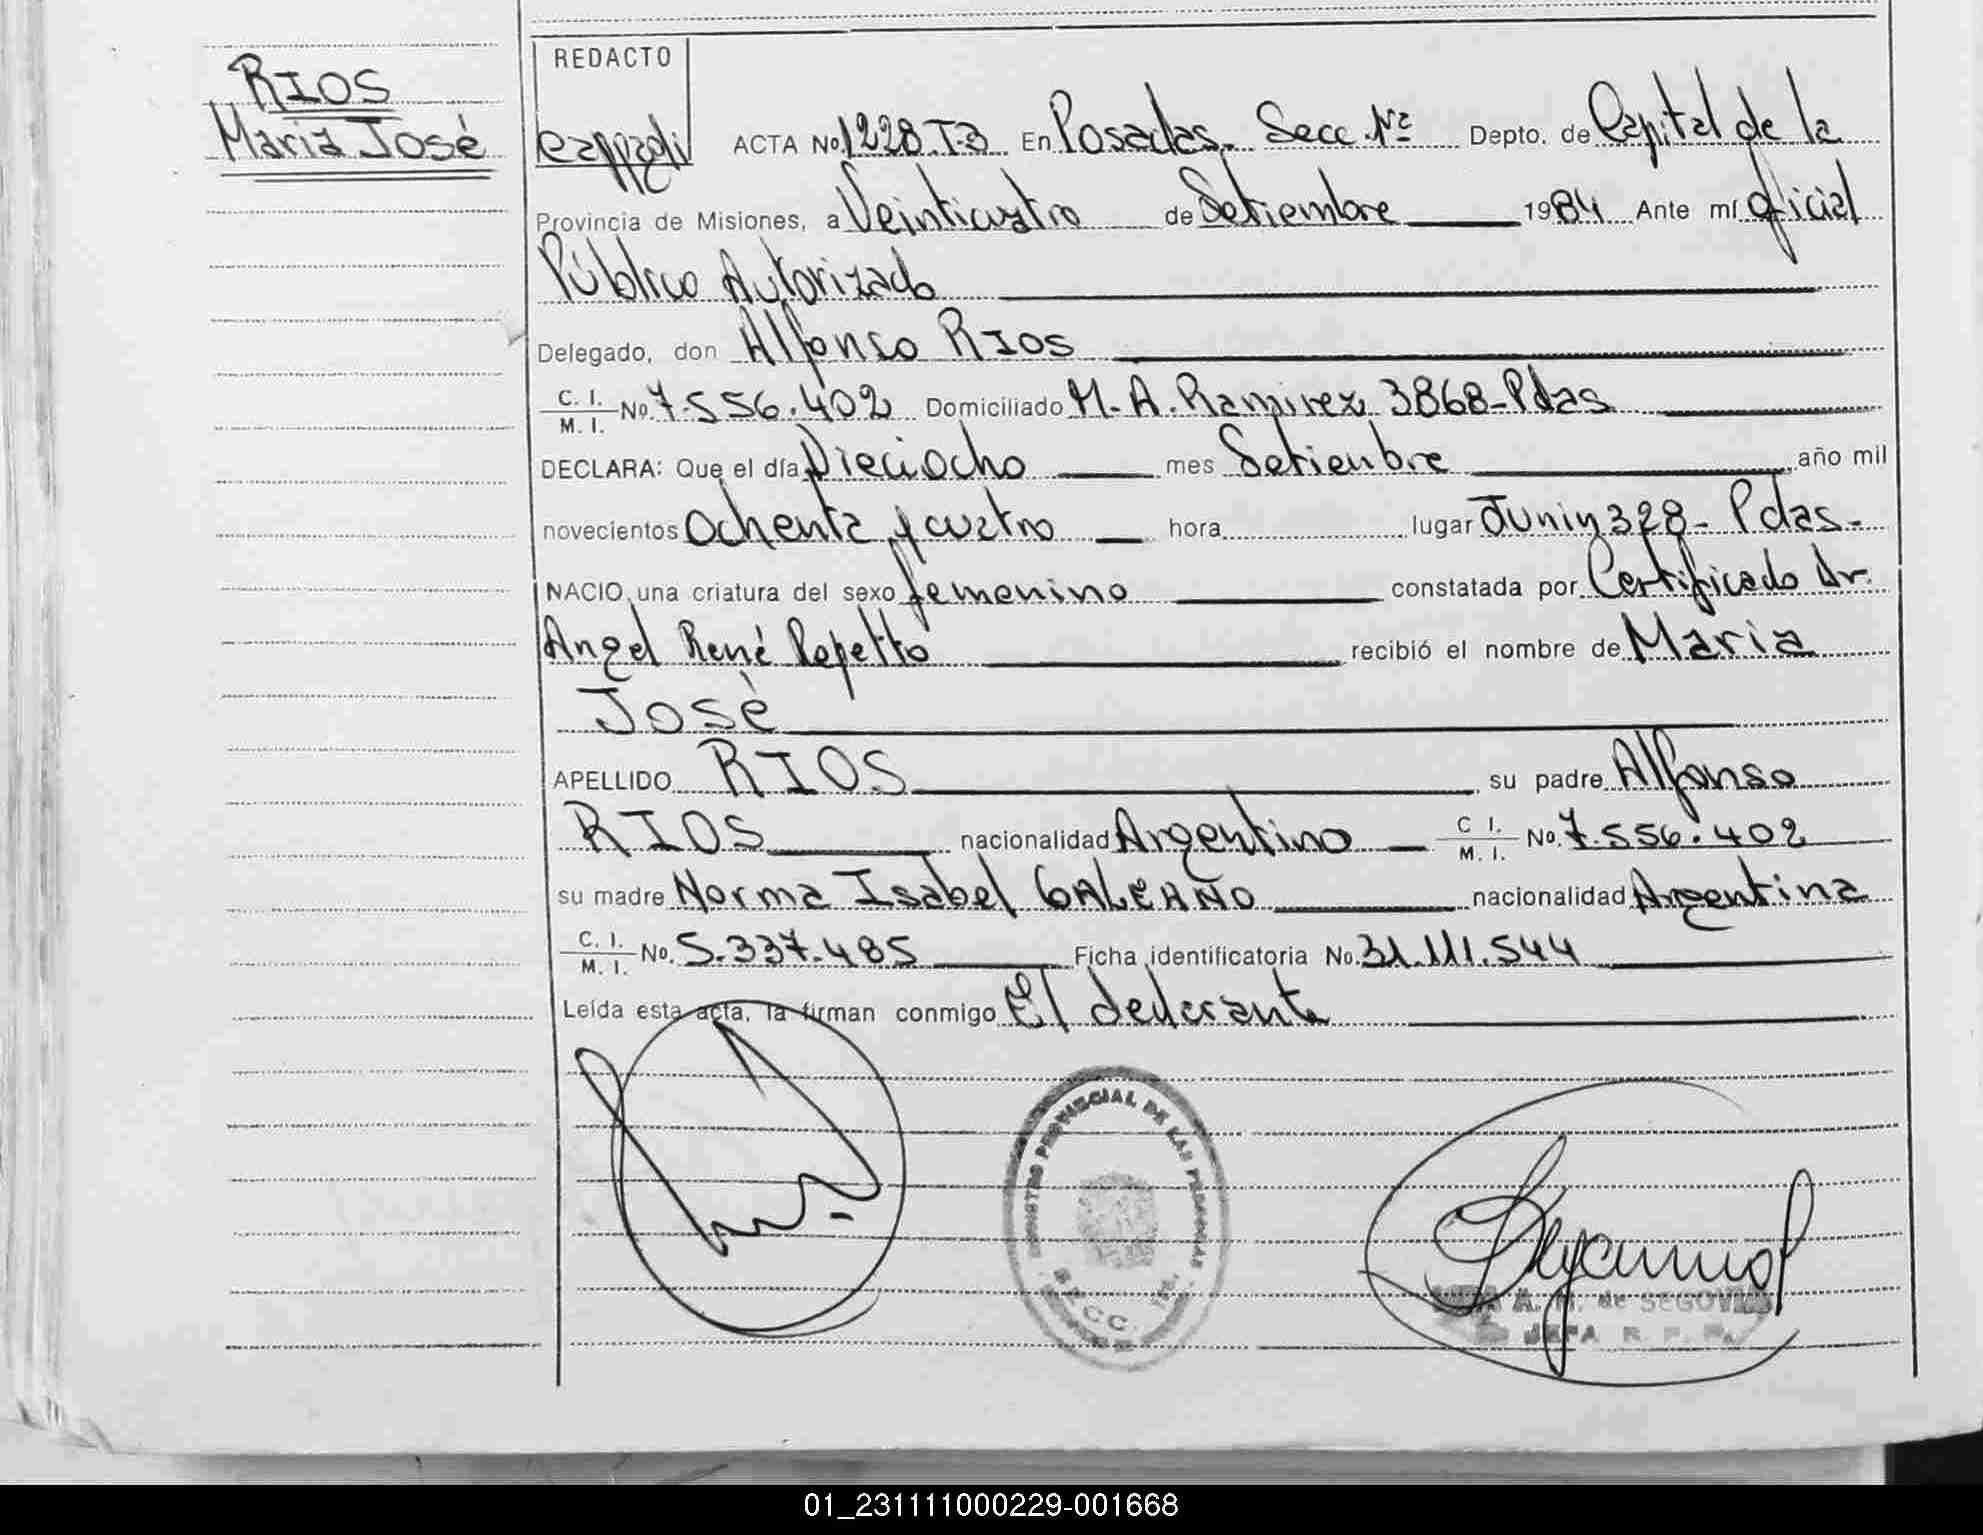 RIOS
Maria José
REDACTO
ACTA No. 1228.T-3 En Posadas. Secc. 1ra Depto. de Capital de la
Provincia de Misiones, a Veinticuatro de Setiembre 1984 Ante mí oficial
Público Autorizado
Delegado, don Alfonso RIOS
C. I.
M. I. No. 7.556.402 Domiciliado M. A. Ramirez 3868-Pdas
DECLARA: Que el día Dieciocho mes Setiembre año mil
novecientos Ochenta y cuatro hora lugar Junin 328- Pdas-
NACIO una criatura del sexo femenino constatada por Certificado Dr.
Angel René Repetto recibió el nombre de Maria
José
APELLIDO RIOS su padre Alfonso
RIOS nacionalidad Argentino C I.
M. I. No. 7.556.402
su madre Norma Isabel GALEANO nacionalidad Argentina
C. I.
M. I. No. 5.337.485 Ficha identificatoria No. 31.111.544
Leída esta acta, la firman conmigo El declarante
PROVINCIAL DE LAS PERSONAS
SECC.
A. M. de SEGOVIA
JEFA R. P. P.
01_231111000229-001668